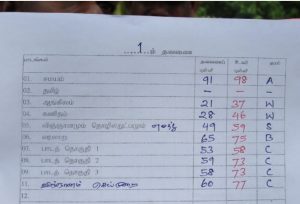 1 ம் தவணை
பாடங்கள் தவணைப் புள்ளி உயர் புள்ளி தரம்
01. சமயம் 91 98 A
02. தமிழ் — — —
03. ஆங்கிலம் 21 37 W
04. கணிதம் 28 46 W
05. விஞ்ஞானமும் தொழிநுட்பமும் 49 59 S
06. வரலாறு 65 75 B
07. பாடத் தொகுதி 1 53 58 C
08. பாடத் தொகுதி 2 59 73 C
09. பாடத் தொகுதி 3 58 73 C
11. 60 77 C
12.